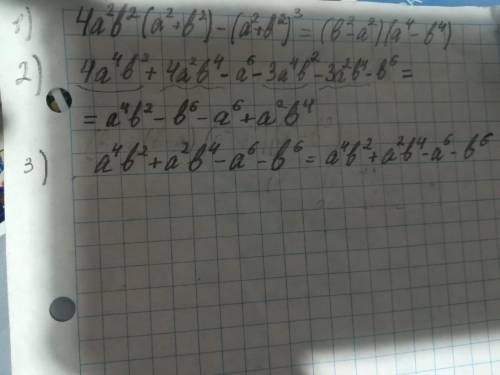 1) 4a²b²(a²+b²)-(a²+b²)³=(b²-a²)(a⁴-b⁴)
2) 4a⁴b²+4a²b⁴-a⁶-3a⁴b²-3a²b⁴-b⁶=
=a⁴b²-b⁶-a⁶+a²b⁴
3) a⁴b²+a²b⁴-a⁶-b⁶=a⁴b²+a²b⁴-a⁶-b⁶